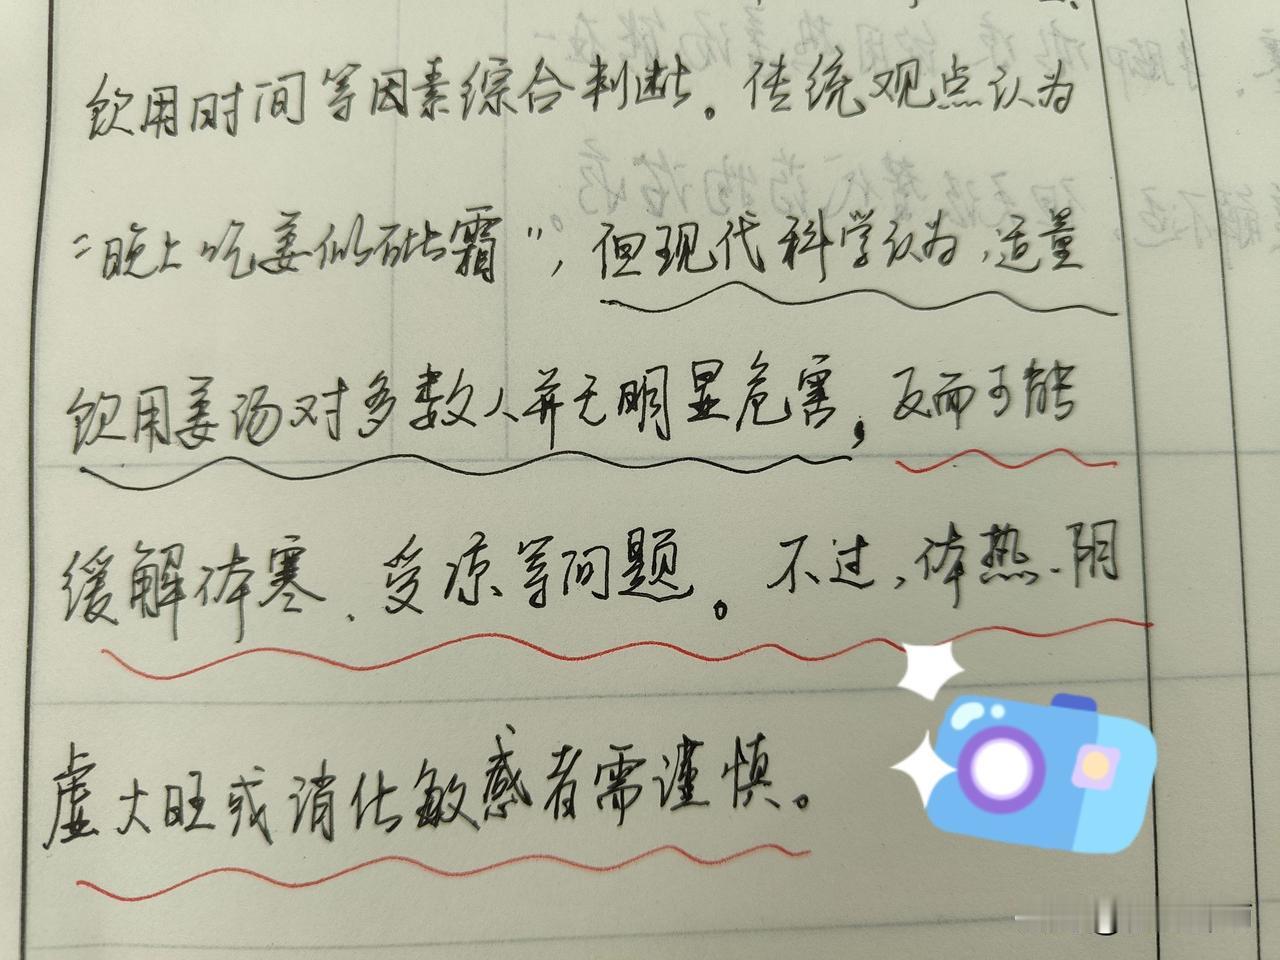 饮用时间等因素综合判断。传统观点认为
“晚上吃姜似砒霜”，但现代科学认为，适量
饮用姜汤对多数人并无明显危害，反而可能
缓解体寒、受凉等问题。不过，体热、阴
虚火旺或消化敏感者需谨慎。